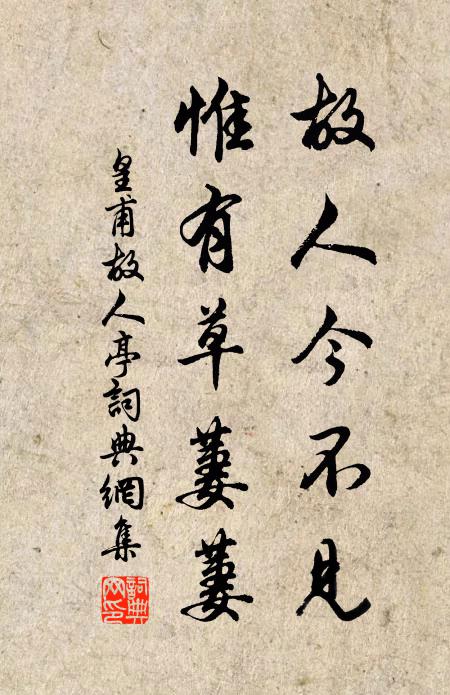 故人今不見
惟有草萋萋
皇甫故人亭詞典網集
詞典
网印